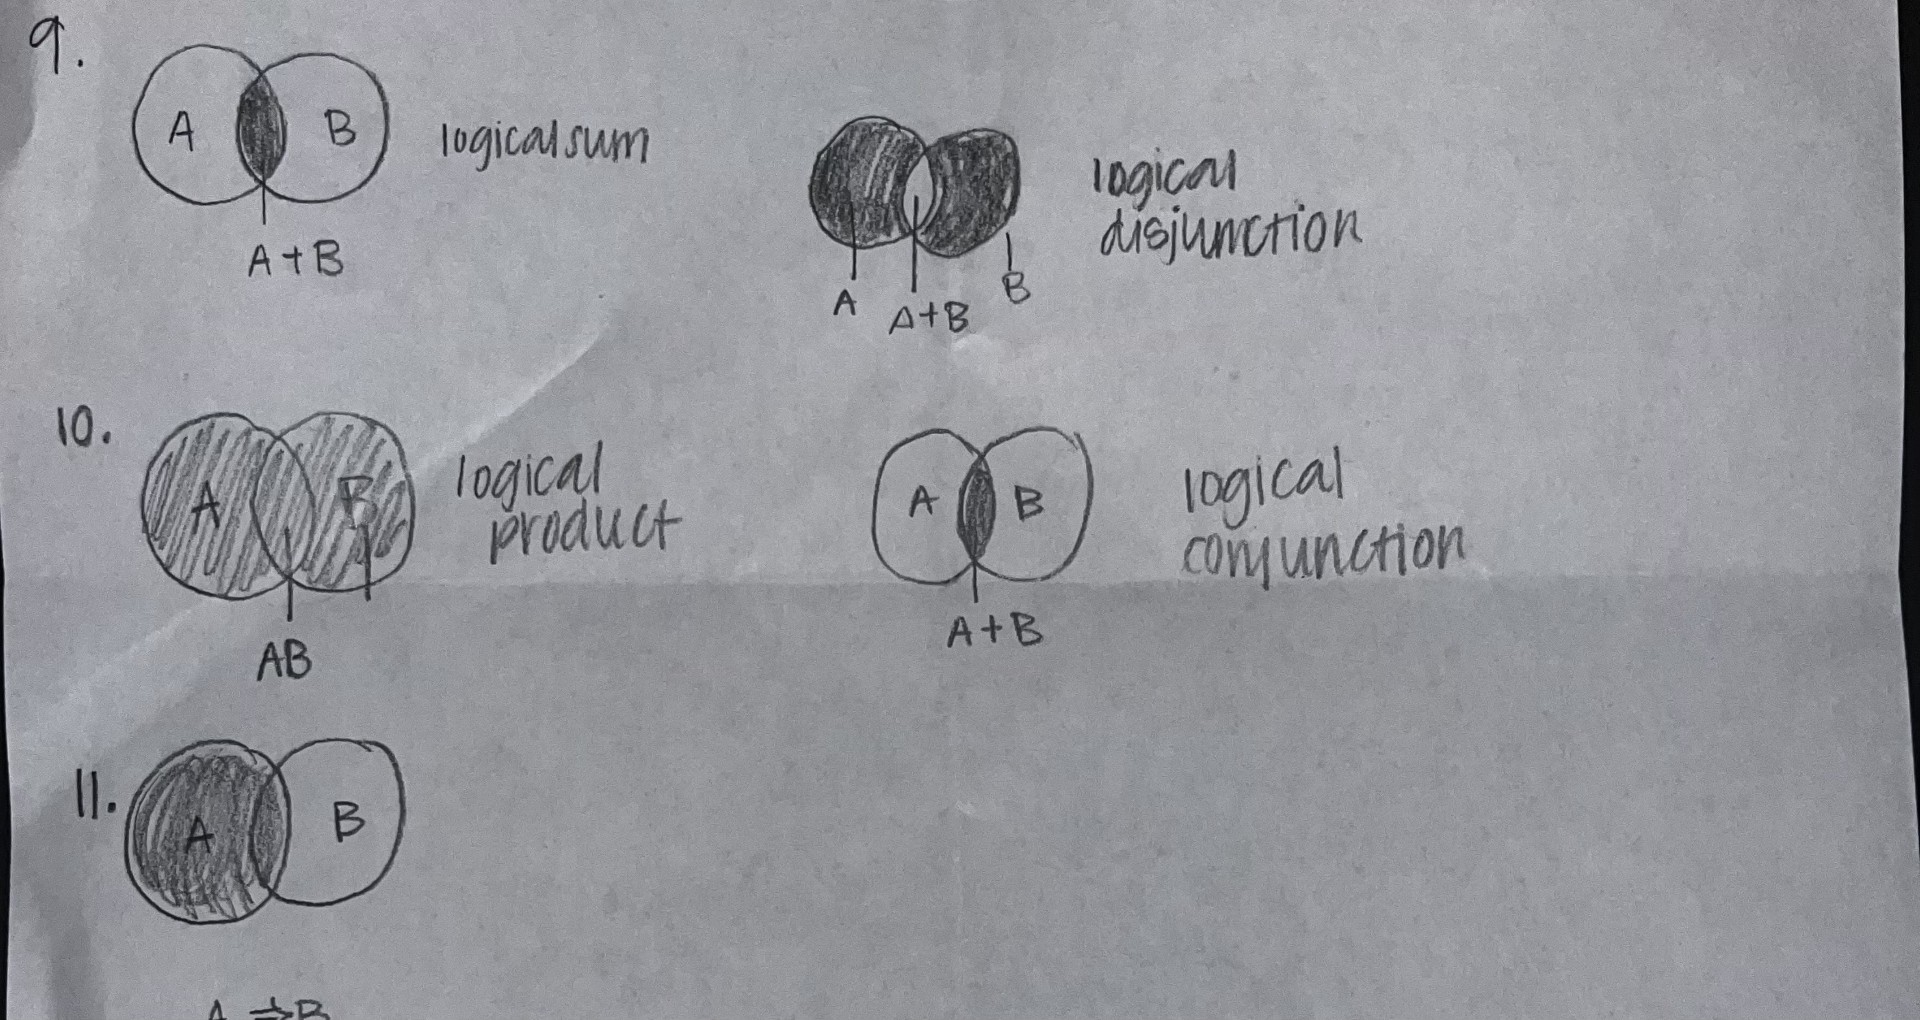 9.
A B logical sum
A+B
logical
disjunction
A A+B B
10.
A B logical
product
AB
A B logical
conjunction
A+B
11.
A B
A ⇒ B